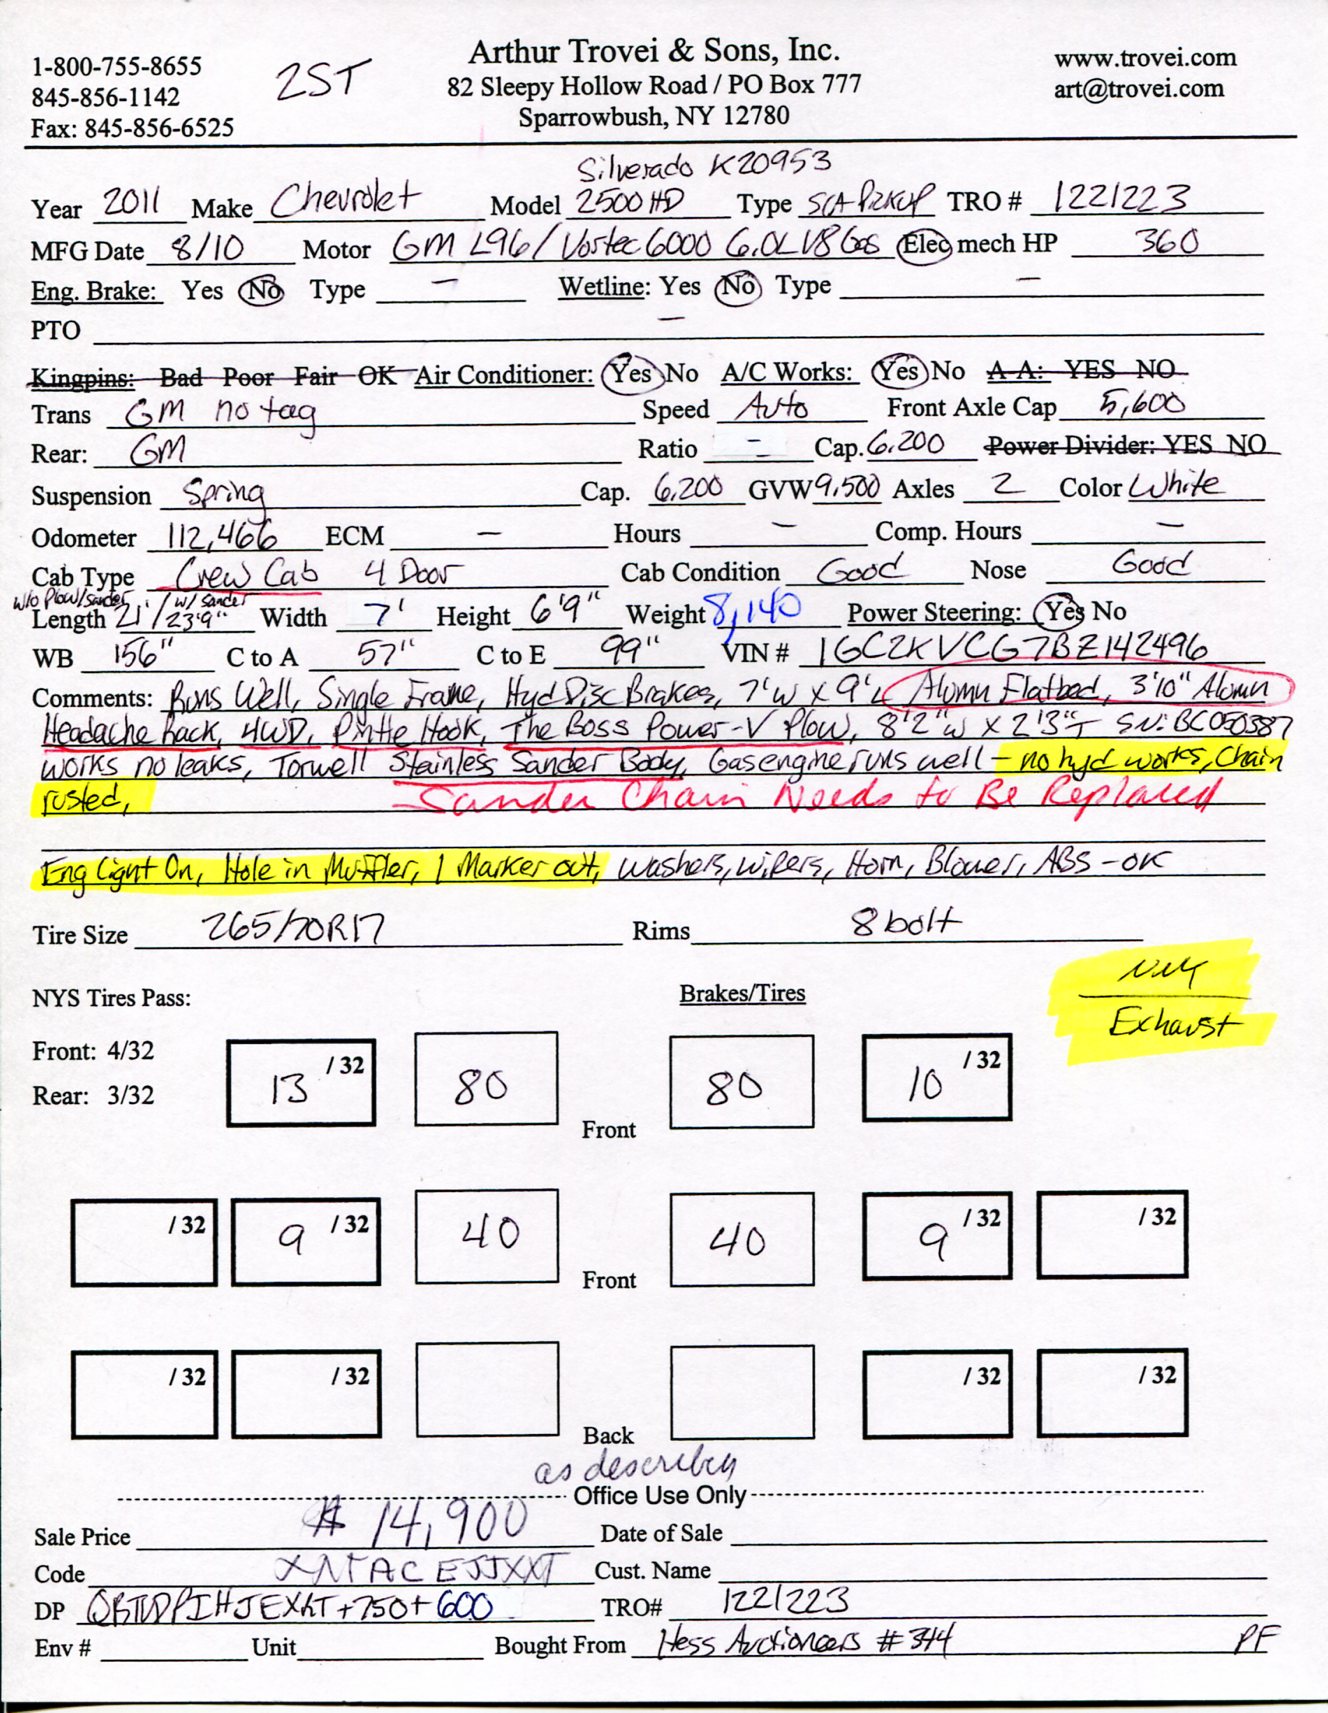 1-800-755-8655
845-856-1142
Fax: 845-856-6525
2ST
Arthur Trovei & Sons, Inc.
82 Sleepy Hollow Road / PO Box 777
Sparrowbush, NY 12780
www.trovei.com
art@trovei.com
Silverado K20953
Year 2011 Make Chevrolet Model 2500 HD Type S/A Pickup TRO # 1221223
MFG Date 8/10 Motor GM L96/Vortec 6000 6.0L V8 Gas Elec mech HP 360
Eng. Brake: Yes No Type – Wetline: Yes No Type –
PTO –
Kingpins: Bad Poor Fair OK Air Conditioner: Yes No A/C Works: Yes No A-A: YES NO
Trans GM no tag Speed Auto Front Axle Cap 5,600
Rear: GM Ratio – Cap. 6,200 Power Divider: YES NO
Suspension Spring Cap. 6,200 GVW 9,500 Axles 2 Color White
Odometer 112,466 ECM – Hours – Comp. Hours –
Cab Type Crew Cab 4 Door Cab Condition Good Nose Good
w/o Plow/sander w/ sander
Length 21'/23'9" Width 7' Height 6'9" Weight 8,140 Power Steering: Yes No
WB 156" C to A 57" C to E 99" VIN # 1GC2KVCG7BZ142496
Comments: Runs Well, Single Frame, Hyd Disc Brakes, 7'W x 9'L Alumn Flatbed, 3'10" Alumn
Headache Rack, 4WD, Pintle Hook, The Boss Power-V Plow, 8'2"W x 2'3"T SN: BC050387
works no leaks, Torwell Stainless Sander Body, Gas engine runs well – no hyd works, Chain
rusted, Sander Chain Needs to Be Replaced
Eng Light On, Hole in Muffler, 1 Marker out, washers, wipers, Horn, Blower, ABS – OK
Tire Size 265/70R17 Rims 8 bolt
NYS Tires Pass: Brakes/Tires
Exhaust
Front: 4/32
Rear: 3/32
13 /32 80 80 10 /32
Front
/32 9 /32 40 40 9 /32 /32
Front
/32 /32 /32 /32
Back
as described
Office Use Only
Sale Price $ 14,900 Date of Sale
Code XNTACEJJXXT Cust. Name
DP +750+600 TRO# 1221223
Env # Unit Bought From Hess Auctioneers #344 PF